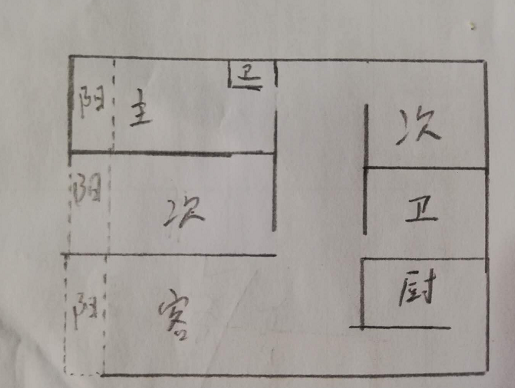 卫
阳 主 次
阳 次 卫
阳 客 厨